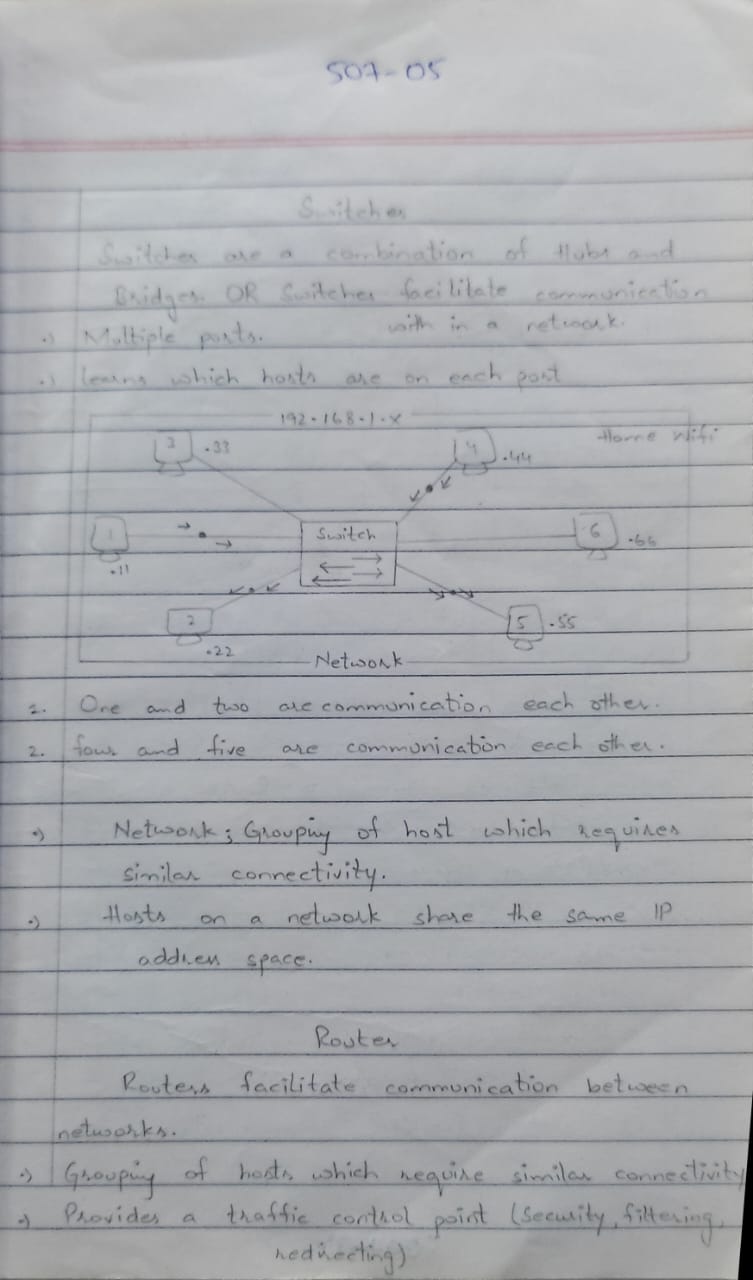 507-05
Switches
Switches are a combination of Hubs and
Bridges. OR Switches facilitate communication
with in a network.
·) Multiple ports.
·) learns which hosts are on each port
192.168.1.X
Home Wifi
3 .33
4 .44
1 .11
Switch
6 .66
2 .22
5 .55
Network
1. One and two are communication each other.
2. four and five are communication each other.
·) Network; Grouping of host which requires
similar connectivity.
·) Hosts on a network share the same IP
address space.
Router
Routers facilitate communication between
networks.
·) Grouping of hosts which require similar connectivity
·) Provides a traffic control point (Security, filtering,
redirecting)